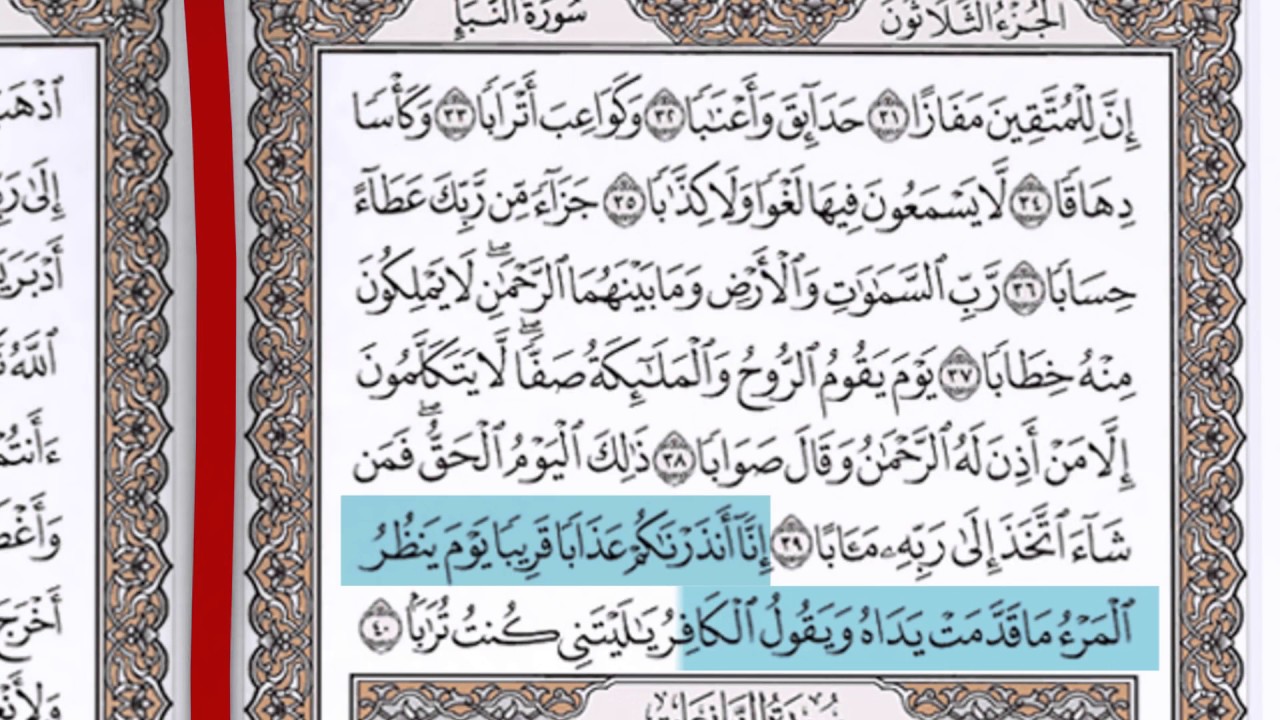 الجُزْءُ الثَّلَاثُونَ
سُورَةُ النَّبَإِ
إِنَّ لِلْمُتَّقِينَ مَفَازًا ٣١ حَدَآئِقَ وَأَعْنَٰبًا ٣٢ وَكَوَاعِبَ أَتْرَابًا ٣٣ وَكَأْسًا
دِهَاقًا ٣٤ لَّا يَسْمَعُونَ فِيهَا لَغْوًا وَلَا كِذَّٰبًا ٣٥ جَزَآءً مِّن رَّبِّكَ عَطَآءً
حِسَابًا ٣٦ رَّبِّ ٱلسَّمَٰوَٰتِ وَٱلْأَرْضِ وَمَا بَيْنَهُمَا ٱلرَّحْمَٰنِۖ لَا يَمْلِكُونَ
مِنْهُ خِطَابًا ٣٧ يَوْمَ يَقُومُ ٱلرُّوحُ وَٱلْمَلَٰٓئِكَةُ صَفًّاۖ لَّا يَتَكَلَّمُونَ
إِلَّا مَنْ أَذِنَ لَهُ ٱلرَّحْمَٰنُ وَقَالَ صَوَابًا ٣٨ ذَٰلِكَ ٱلْيَوْمُ ٱلْحَقُّۖ فَمَن
شَآءَ ٱتَّخَذَ إِلَىٰ رَبِّهِۦ مَـَٔابًا ٣٩ إِنَّآ أَنذَرْنَٰكُمْ عَذَابًا قَرِيبًا يَوْمَ يَنظُرُ
ٱلْمَرْءُ مَا قَدَّمَتْ يَدَاهُ وَيَقُولُ ٱلْكَافِرُ يَٰلَيْتَنِى كُنتُ تُرَٰبًۢا ٤٠
سُورَةُ النَّازِعَاتِ
إِلَىٰ
ٱللَّهُ